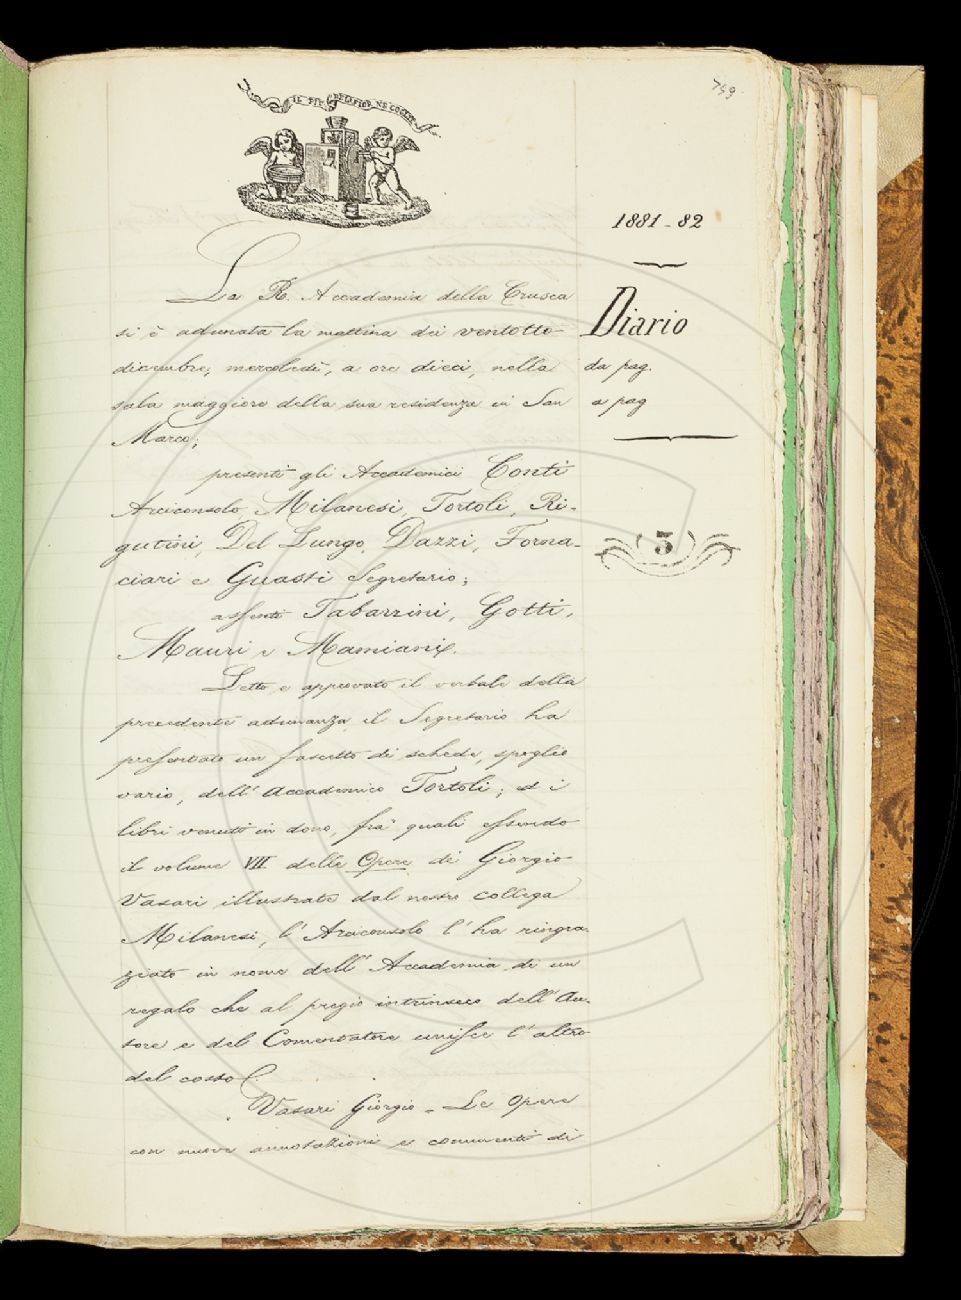 IL PIÙ BEL FIOR NE COGLIE
749
1881-82
Diario
da pag.
a pag
5
La R. Accademia della Crusca
si è adunata la mattina dei ventotto
dicembre, mercoledì, a ore dieci, nella
sala maggiore della sua residenza in San
Marco;
presenti gli Accademici Conti
Arciconsolo, Milanesi, Tortoli, Ri-
gutini, Del Lungo, Dazzi, Forna-
ciari e Guasti Segretario;
assenti Tabarrini, Gotti,
Mauri e Mamiani.
Letto e approvato il verbale della
precedente adunanza, il Segretario ha
presentato un fascetto di schede, spoglio
vario, dell'Accademico Tortoli; ed i
libri venuti in dono, fra' quali essendo
il volume VII delle Opere di Giorgio
Vasari illustrate dal nostro collega
Milanesi, l'Arciconsolo l'ha ringra-
ziato in nome dell'Accademia di un
regalo che al pregio intrinseco dell'Au-
tore e del Comentatore unisce l'altro
del costo.
Vasari Giorgio - Le Opere
con nuove annotazioni e commenti di